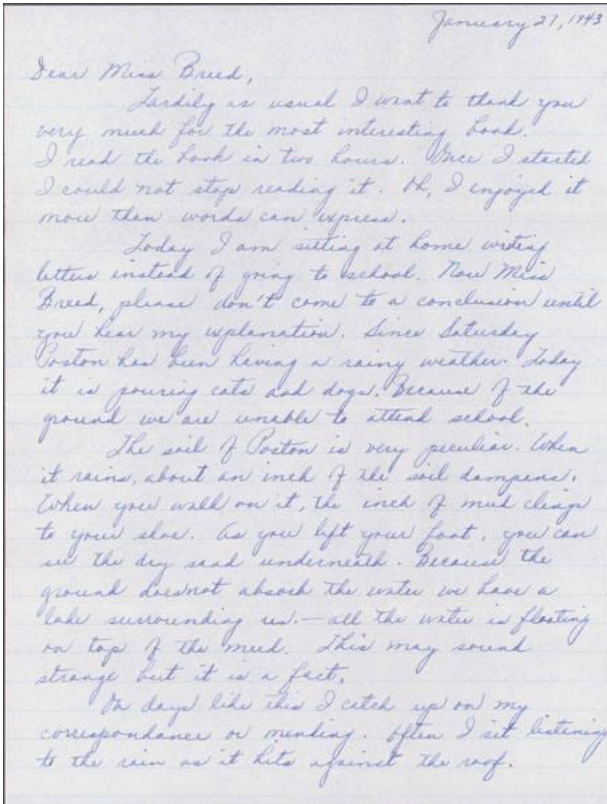 January 27, 1943
Dear Miss Breed,
Tardily as usual I want to thank you
very much for the most interesting book.
I read the book in two hours. Once I started
I could not stop reading it. Oh, I enjoyed it
more than words can express.
Today I am sitting at home writing
letters instead of going to school. Now Miss
Breed, please don't come to a conclusion until
you hear my explanation. Since Saturday
Poston has been having a rainy weather. Today
it is pouring cats and dogs. Because of the
ground we are unable to attend school.
The soil of Poston is very peculiar. When
it rains, about an inch of the soil dampens.
When you walk on it, the inch of mud clings
to your shoe. As you lift your foot, you can
see the dry sand underneath. Because the
ground does not absorb the water we have a
lake surrounding us. — all the water is floating
on top of the mud. This may sound
strange but it is a fact.
On days like this I catch up on my
correspondance or mending. Often I sit listening
to the rain as it hits against the roof.